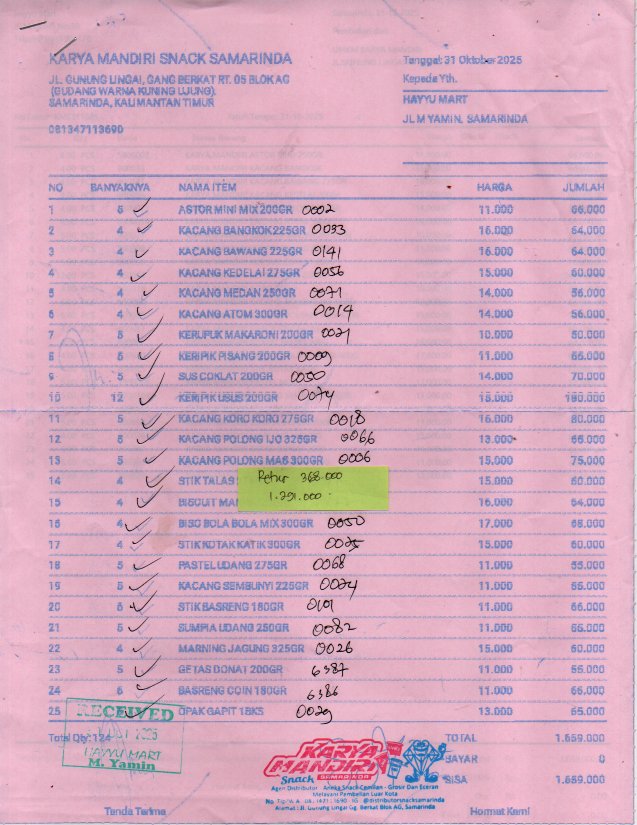 KARYA MANDIRI SNACK SAMARINDA
JL. GUNUNG LINGAI, GANG BERKAT RT. 05 BLOK AG
(GUDANG WARNA KUNING UJUNG).
SAMARINDA, KALIMANTAN TIMUR
081347113690
Tanggal: 31 Oktober 2025
Kepada Yth.
HAYYU MART
JL M YAMIN. SAMARINDA
NO BANYAKNYA NAMA ITEM HARGA JUMLAH
1 6 ASTOR MINI MIX 200GR 0002 11.000 66.000
2 4 KACANG BANGKOK 225GR 0093 16.000 64.000
3 4 KACANG BAWANG 225GR 0141 16.000 64.000
4 4 KACANG KEDELAI 275GR 0056 15.000 60.000
5 4 KACANG MEDAN 250GR 0071 14.000 56.000
6 4 KACANG ATOM 300GR 0014 14.000 56.000
7 5 KERUPUK MAKARONI 200GR 0021 10.000 50.000
8 5 KERIPIK PISANG 200GR 0009 11.000 55.000
9 5 SUS COKLAT 200GR 0050 14.000 70.000
10 12 KERIPIK USUS 200GR 0074 15.000 180.000
11 5 KACANG KORO KORO 275GR 0018 16.000 80.000
12 5 KACANG POLONG IJO 325GR 0066 13.000 65.000
13 5 KACANG POLONG MAS 300GR 0006 15.000 75.000
14 4 STIK TALAS 15.000 60.000
Retur 368.000
1.291.000
15 4 BISCUIT MA 16.000 64.000
16 4 BISC BOLA BOLA MIX 300GR 0050 17.000 68.000
17 4 STIK KOTAK KATIK 300GR 0025 15.000 60.000
18 5 PASTEL UDANG 275GR 0068 11.000 55.000
19 5 KACANG SEMBUNYI 225GR 0024 11.000 55.000
20 6 STIK BASRENG 180GR 0101 11.000 66.000
21 5 SUMPIA UDANG 250GR 0082 11.000 55.000
22 4 MARNING JAGUNG 325GR 0026 15.000 60.000
23 5 GETAS DONAT 200GR 6387 11.000 55.000
24 5 BASRENG COIN 180GR 6386 11.000 55.000
25 5 OPAK GAPIT 18KS 0029 13.000 65.000
RECEIVED
HAYYU MART
M. Yamin
Total Qty: 124
TOTAL 1.659.000
BAYAR 0
SISA 1.659.000
KARYA MANDIRI
Snack SAMARINDA
Agen Distributor Aneka Snack Cemilan - Grosir Dan Eceran
Melayani Pembelian Luar Kota
@distributorsnacksamarinda
Alamat : Jl. Gunung Lingai Gg. Berkat Blok AG, Samarinda
Tanda Terima
Hormat Kami